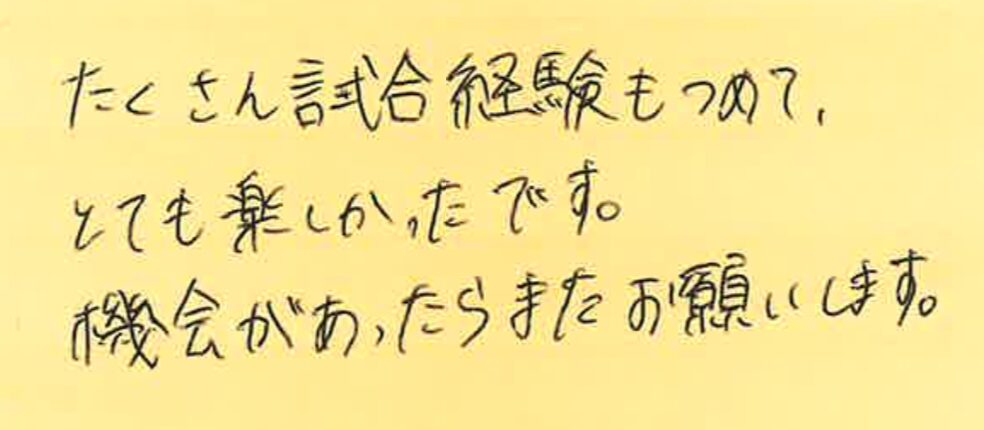 たくさん試合経験もつめて、
とても楽しかったです。
機会があったらまたお願いします。